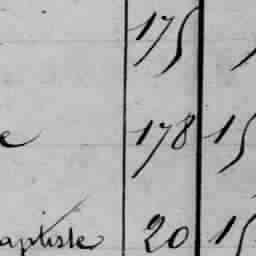 175
e 178 15
aptiste 20 15